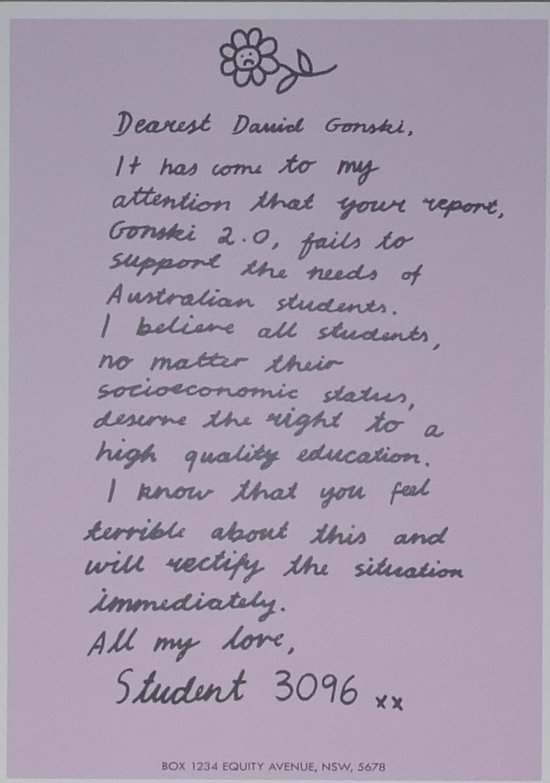 Dearest David Gonski,
It has come to my
attention that your report,
Gonski 2.0, fails to
support the needs of
Australian students.
I believe all students,
no matter their
socioeconomic status,
deserve the right to a
high quality education.
I know that you feel
terrible about this and
will rectify the situation
immediately.
All my love,
Student 3096 xx
BOX 1234 EQUITY AVENUE, NSW, 5678